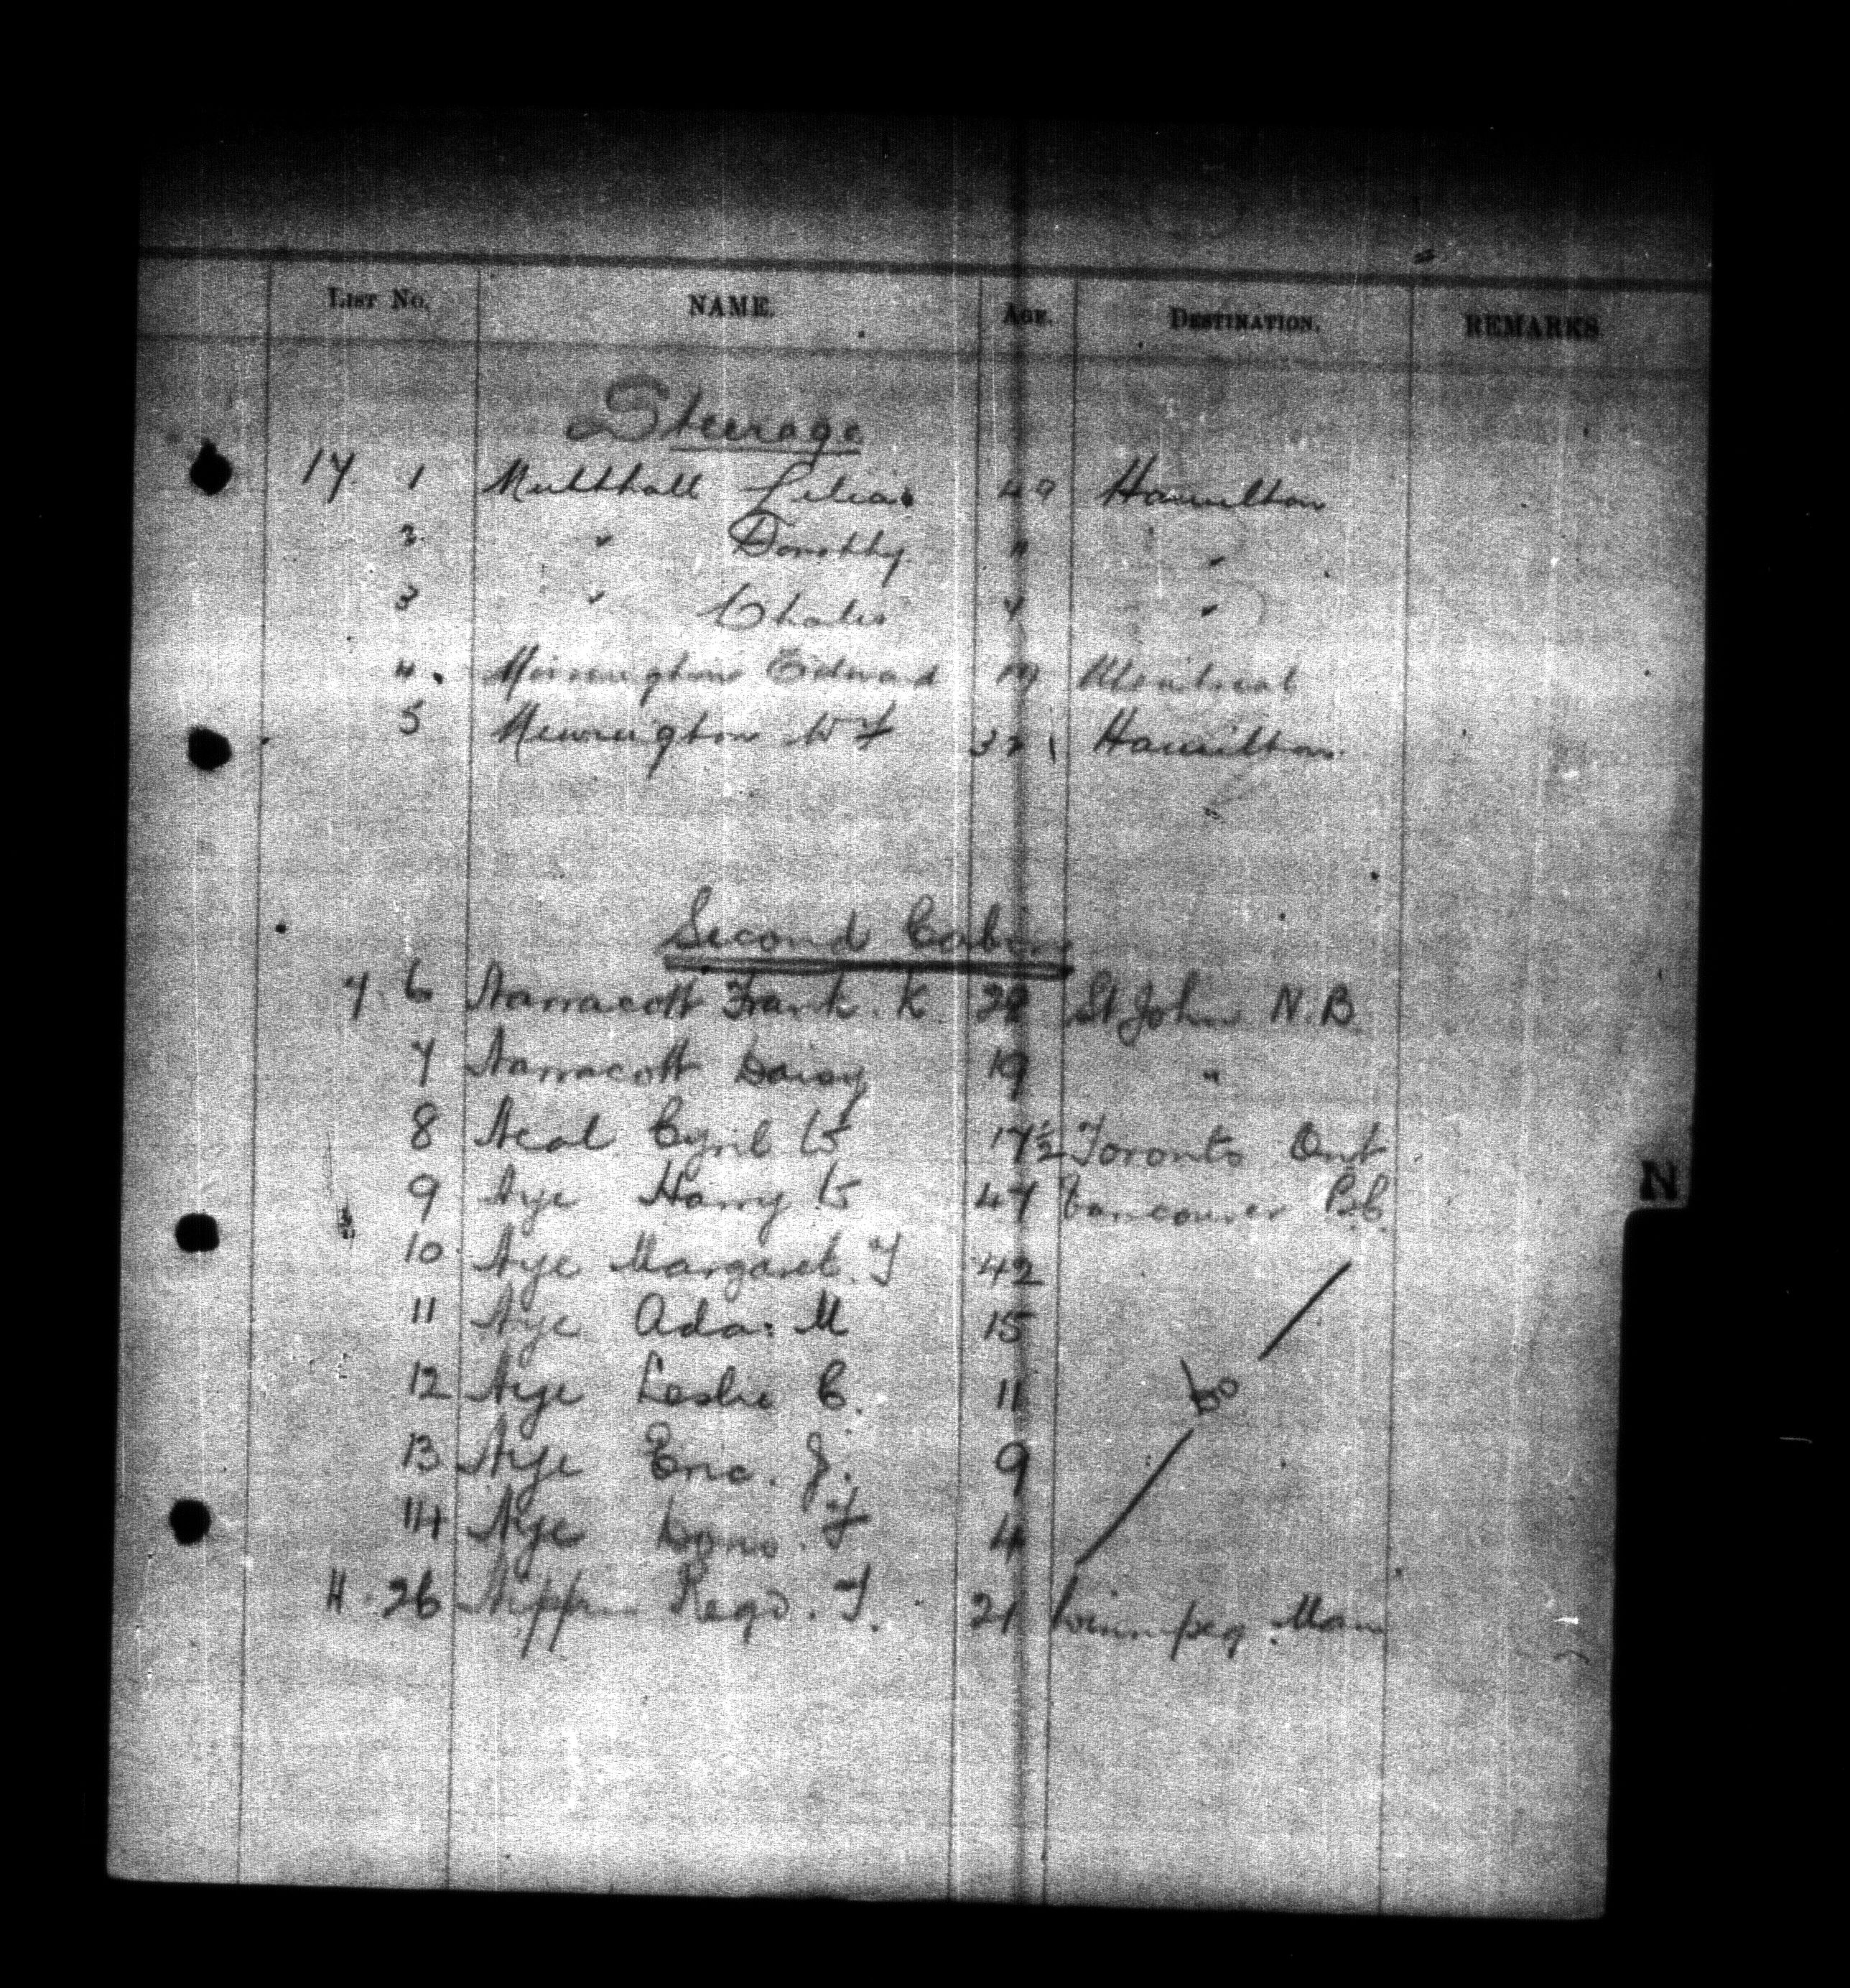 List No. NAME. Age. DESTINATION. REMARKS
Steerage
17. 1 Multhall 40 Hamilton
2 " Dorothy 11 "
3 " Charles 7 "
4. Edward 19 Montreal
5 Newington W F 32 Hamilton
Second Cabin
7. 6 Narracott Frank. K. 28 St John N.B
7 Narracott Daisy 19 "
8 Neal Cyril G 17½ Toronto Ont
9 Nye Harry G 47 Vancouver B.C.
N
10 Nye Margaret. T 42
11 Nye Ada. M 15
12 Nye Leslie C. 11 Do
13 Nye Eric. J. 9
14 Nye F 4
H. 26 Regd. T. 21 Winnipeg Man